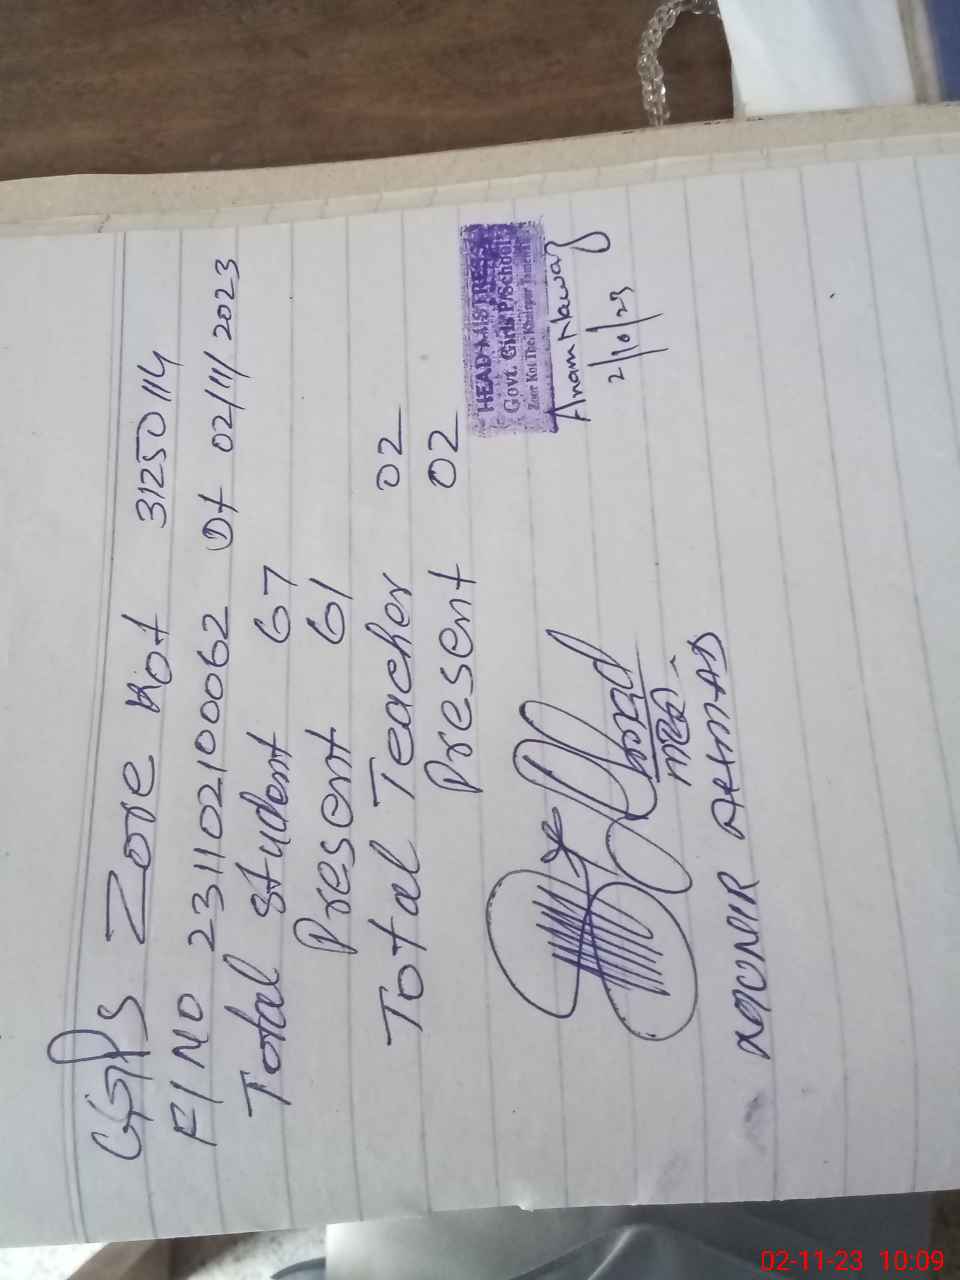 GGPS Zore Kot 31250114
F/NO 23110210062 Dt 02/11/2023
Total student 67
Present 61
Total Teacher 02
Present 02
HEAD MISTRESS
Govt. Girls P/School
Zoor Kot The. Khairpur Tamewali
Anam Nawaz
2/10/23
AHMAD
02-11-23 10:09